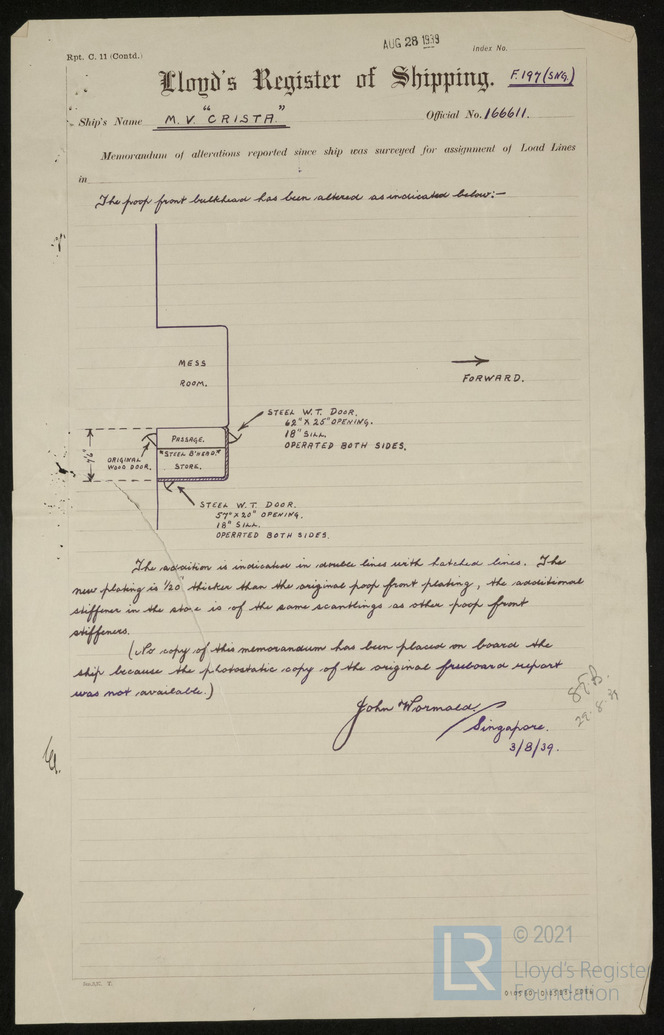 Rpt. C. 11 (Contd.)
AUG 28 1939
Index No.
Lloyd's Register of Shipping.
F.197 (SNG.)
Ship's Name M.V. "CRISTA"
Official No. 166611.
Memorandum of alterations reported since ship was surveyed for assignment of Load Lines
in
The poop front bulkhead has been altered as indicated below:—
MESS
ROOM.
FORWARD.
STEEL W.T. DOOR.
62" X 25" OPENING.
18" SILL.
OPERATED BOTH SIDES.
PASSAGE.
"STEEL B'HEAD."
STORE.
ORIGINAL
WOOD DOOR.
STEEL W.T. DOOR.
57" X 20" OPENING.
18" SILL.
OPERATED BOTH SIDES.
The addition is indicated in double lines with hatched lines. The
new plating is 1/20" thicker than the original poop front plating, the additional
stiffener in the store is of the same scantlings as other poop front
stiffeners.
(No copy of this memorandum has been placed on board the
ship because the photostatic copy of the original freeboard report
was not available.)
John Wormald
Singapore.
3/8/39.
29.8.39
LR
© 2021
Lloyd's Registe
Foundation